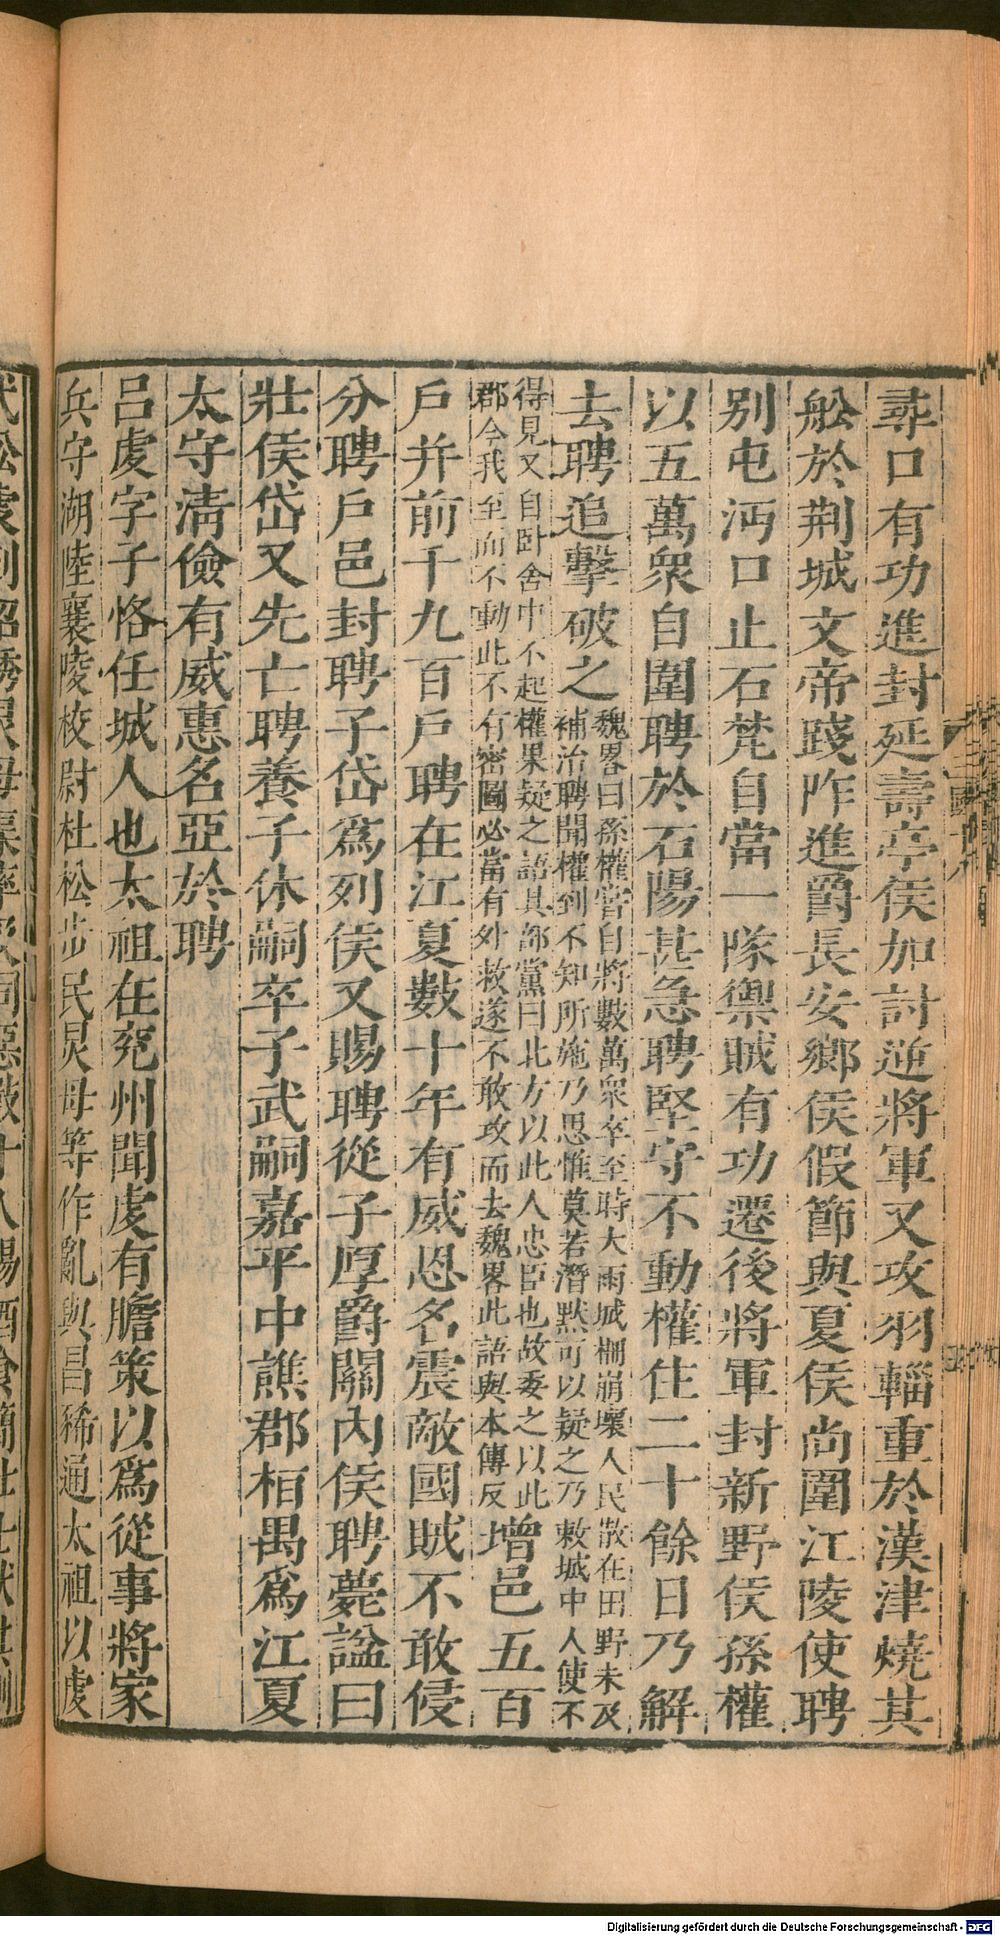 尋口有功進封延壽亭侯加討逆將軍又攻羽輜重於漢津燒其
舩於荆城文帝踐阼進爵長安鄉侯假節與夏侯尚圍江陵使聘
别屯沔口止石梵自當一隊禦賊有功遷後將軍封新野侯孫權
以五萬衆自圍聘於石陽甚急聘堅守不動權住二十餘日乃解
去聘追擊破之
魏畧曰孫權嘗自將數萬衆卒至時大雨城柵崩壞人民散在田野未及
補治聘聞權到不知所施乃思惟莫若潛默可以疑之乃敕城中人使不
得見又自卧舍中不起權果疑之語其部黨曰北方以此人忠臣也故委之以此
郡今我至而不動此不有密圖必當有外救遂不敢攻而去魏畧此語與本傳反
增邑五百
戶并前千九百戶聘在江夏數十年有威恩名震敵國賊不敢侵
分聘戶邑封聘子岱爲列侯又賜聘從子厚爵關內侯聘薨諡曰
壯侯岱又先亡聘養子休嗣卒子武嗣嘉平中譙郡桓禺爲江夏
太守清儉有威惠名亞於聘
呂虔字子恪任城人也太祖在兖州聞虔有膽策以爲從事將家
兵守湖陸襄陵校尉杜松步民炅母等作亂與昌豨通太祖以虔
Digitalisierung gefördert durch die Deutsche Forschungsgemeinschaft - DFG